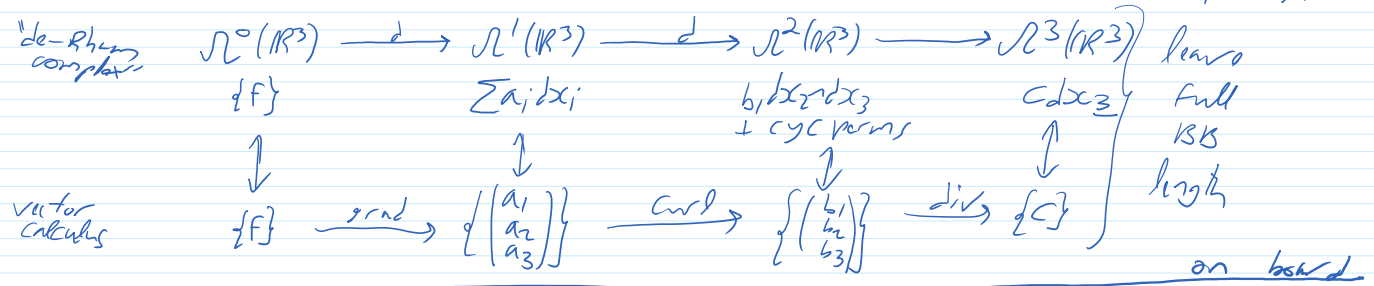 "de-Rham complex" Ω⁰(ℝ³) —d→ Ω¹(ℝ³) —d→ Ω²(ℝ³) ⟶ Ω³(ℝ³)
{f} Σaᵢdxᵢ b₁dx₂∧dx₃ + cyc perms Cdx₃
↕ ↕ ↕ ↕
vector calculus {f} —grad→ {(a₁ a₂ a₃)} —curl→ {(b₁ b₂ b₃)} —div→ {C}
leave
full
BB
length
on board